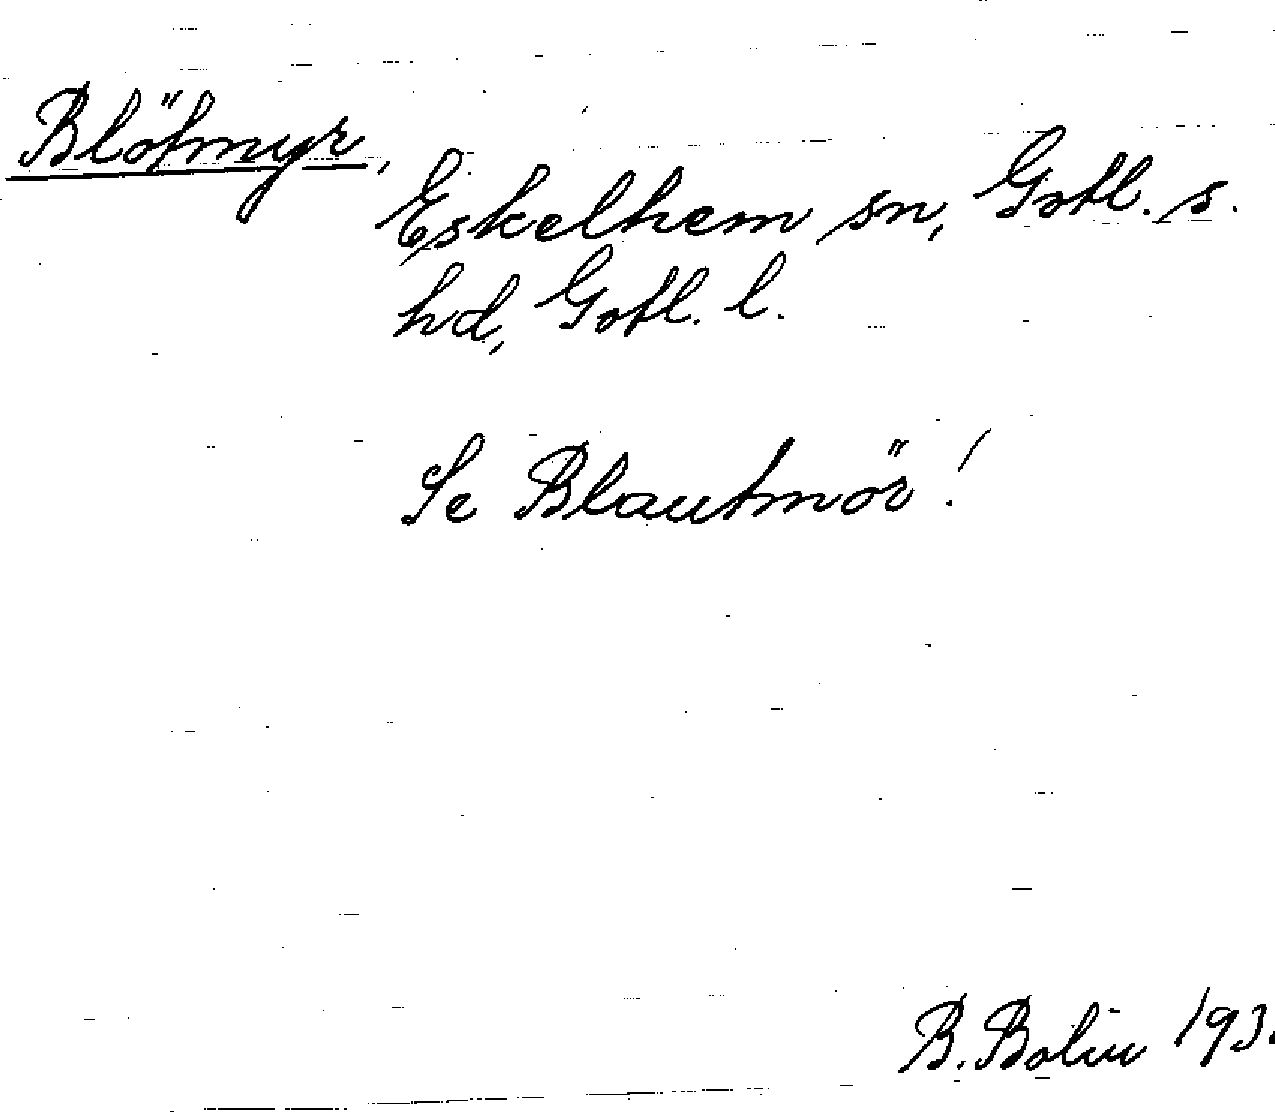 Blötmyr,
Eskelhem sn, Gotl. s.
hd, Gotl. l.
Se Blautmör!
B. Bolin 193